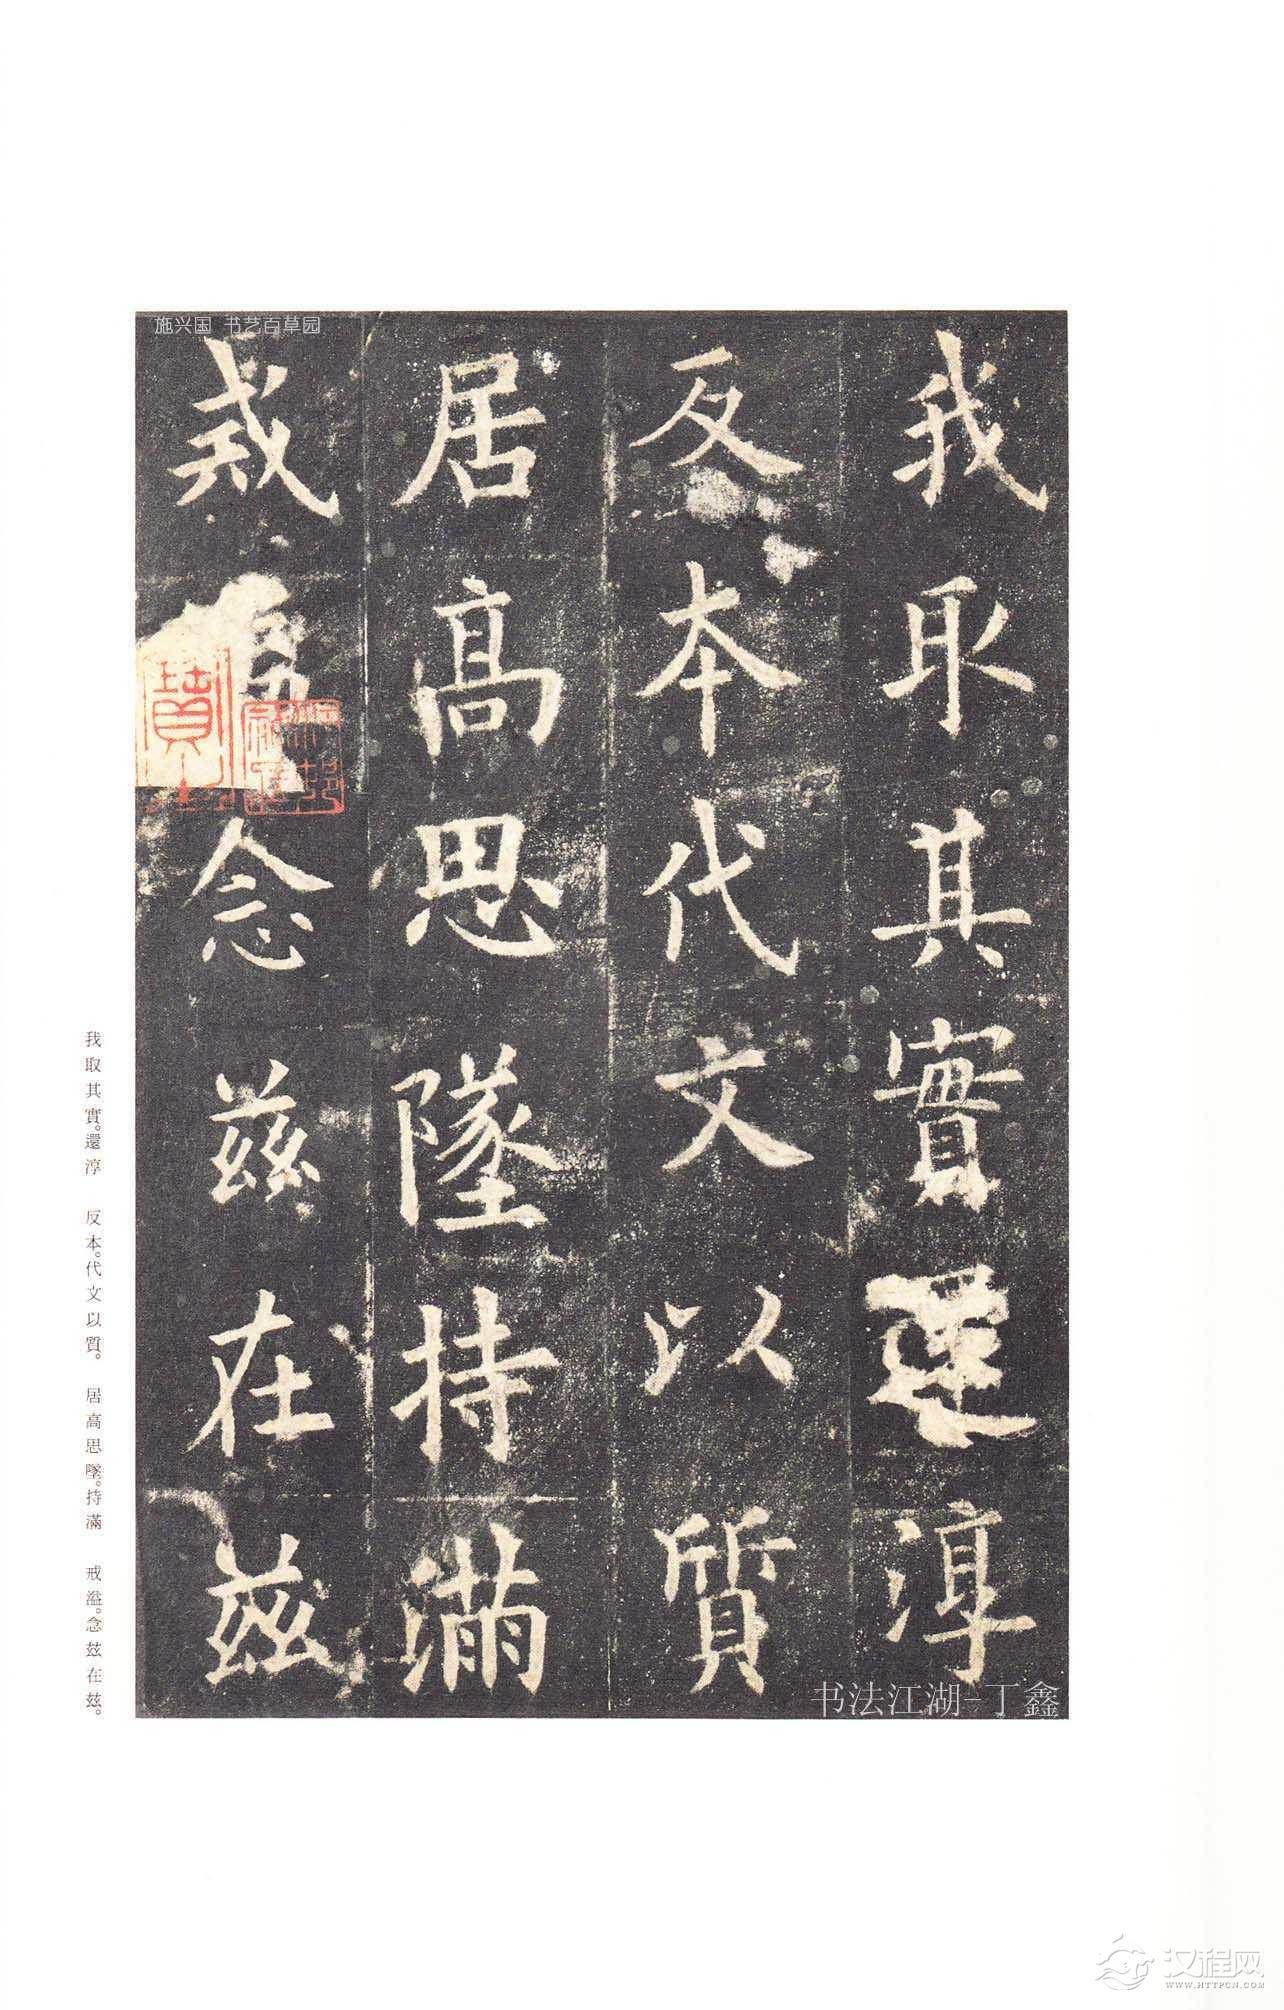 施兴国 书艺百草园
我取其實還淳
反本代文以質
居高思墜持滿
戒溢念兹在兹
我取其實。還淳 反本。代文以質。 居高思墜。持滿 戒溢。念兹在兹。
书法江湖-丁鑫
汉程网
WWW.HTTPCN.COM